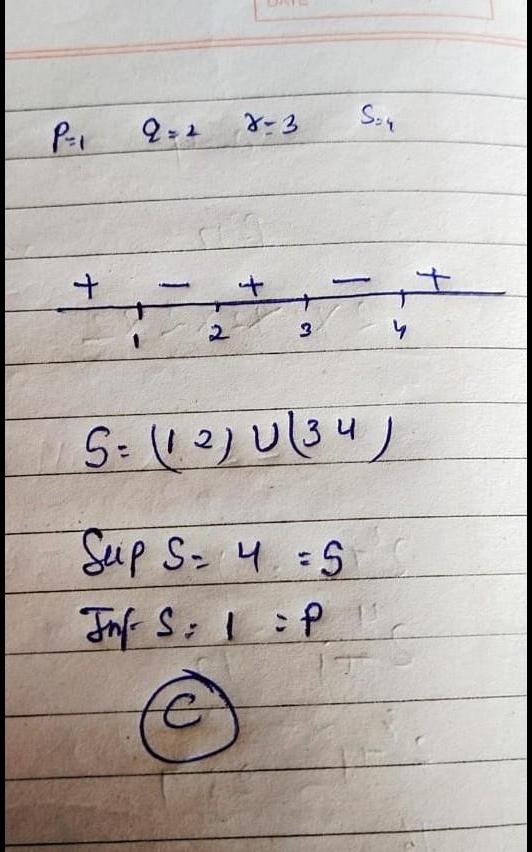 DATE
P=1 Q=2 r=3 S=4
+ - + - +
1 2 3 4
S= (1 2) U (3 4)
Sup S= 4 = S
Inf S= 1 = P
C